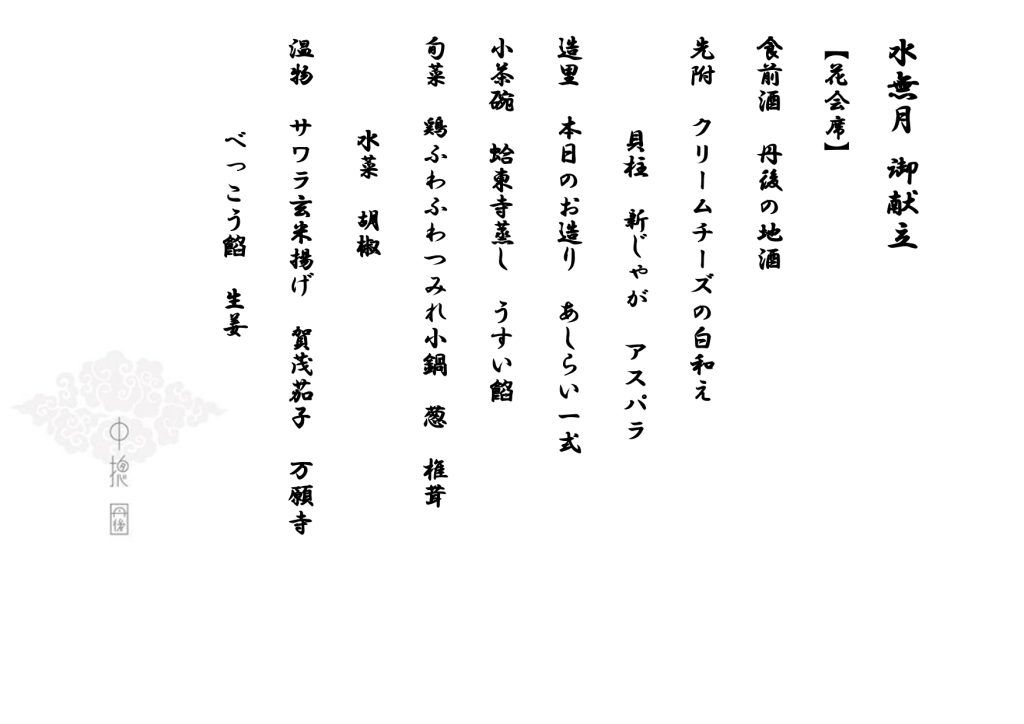 水無月　御献立
【花会席】
食前酒　丹後の地酒
先附　クリームチーズの白和え
貝柱　新じゃが　アスパラ
造里　本日のお造り　あしらい一式
小茶碗　蛤東寺蒸し　うすい餡
旬菜　鶏ふわふわつみれ小鍋　葱　椎茸
水菜　胡椒
温物　サワラ玄米揚げ　賀茂茄子　万願寺
べっこう餡　生姜
丹後